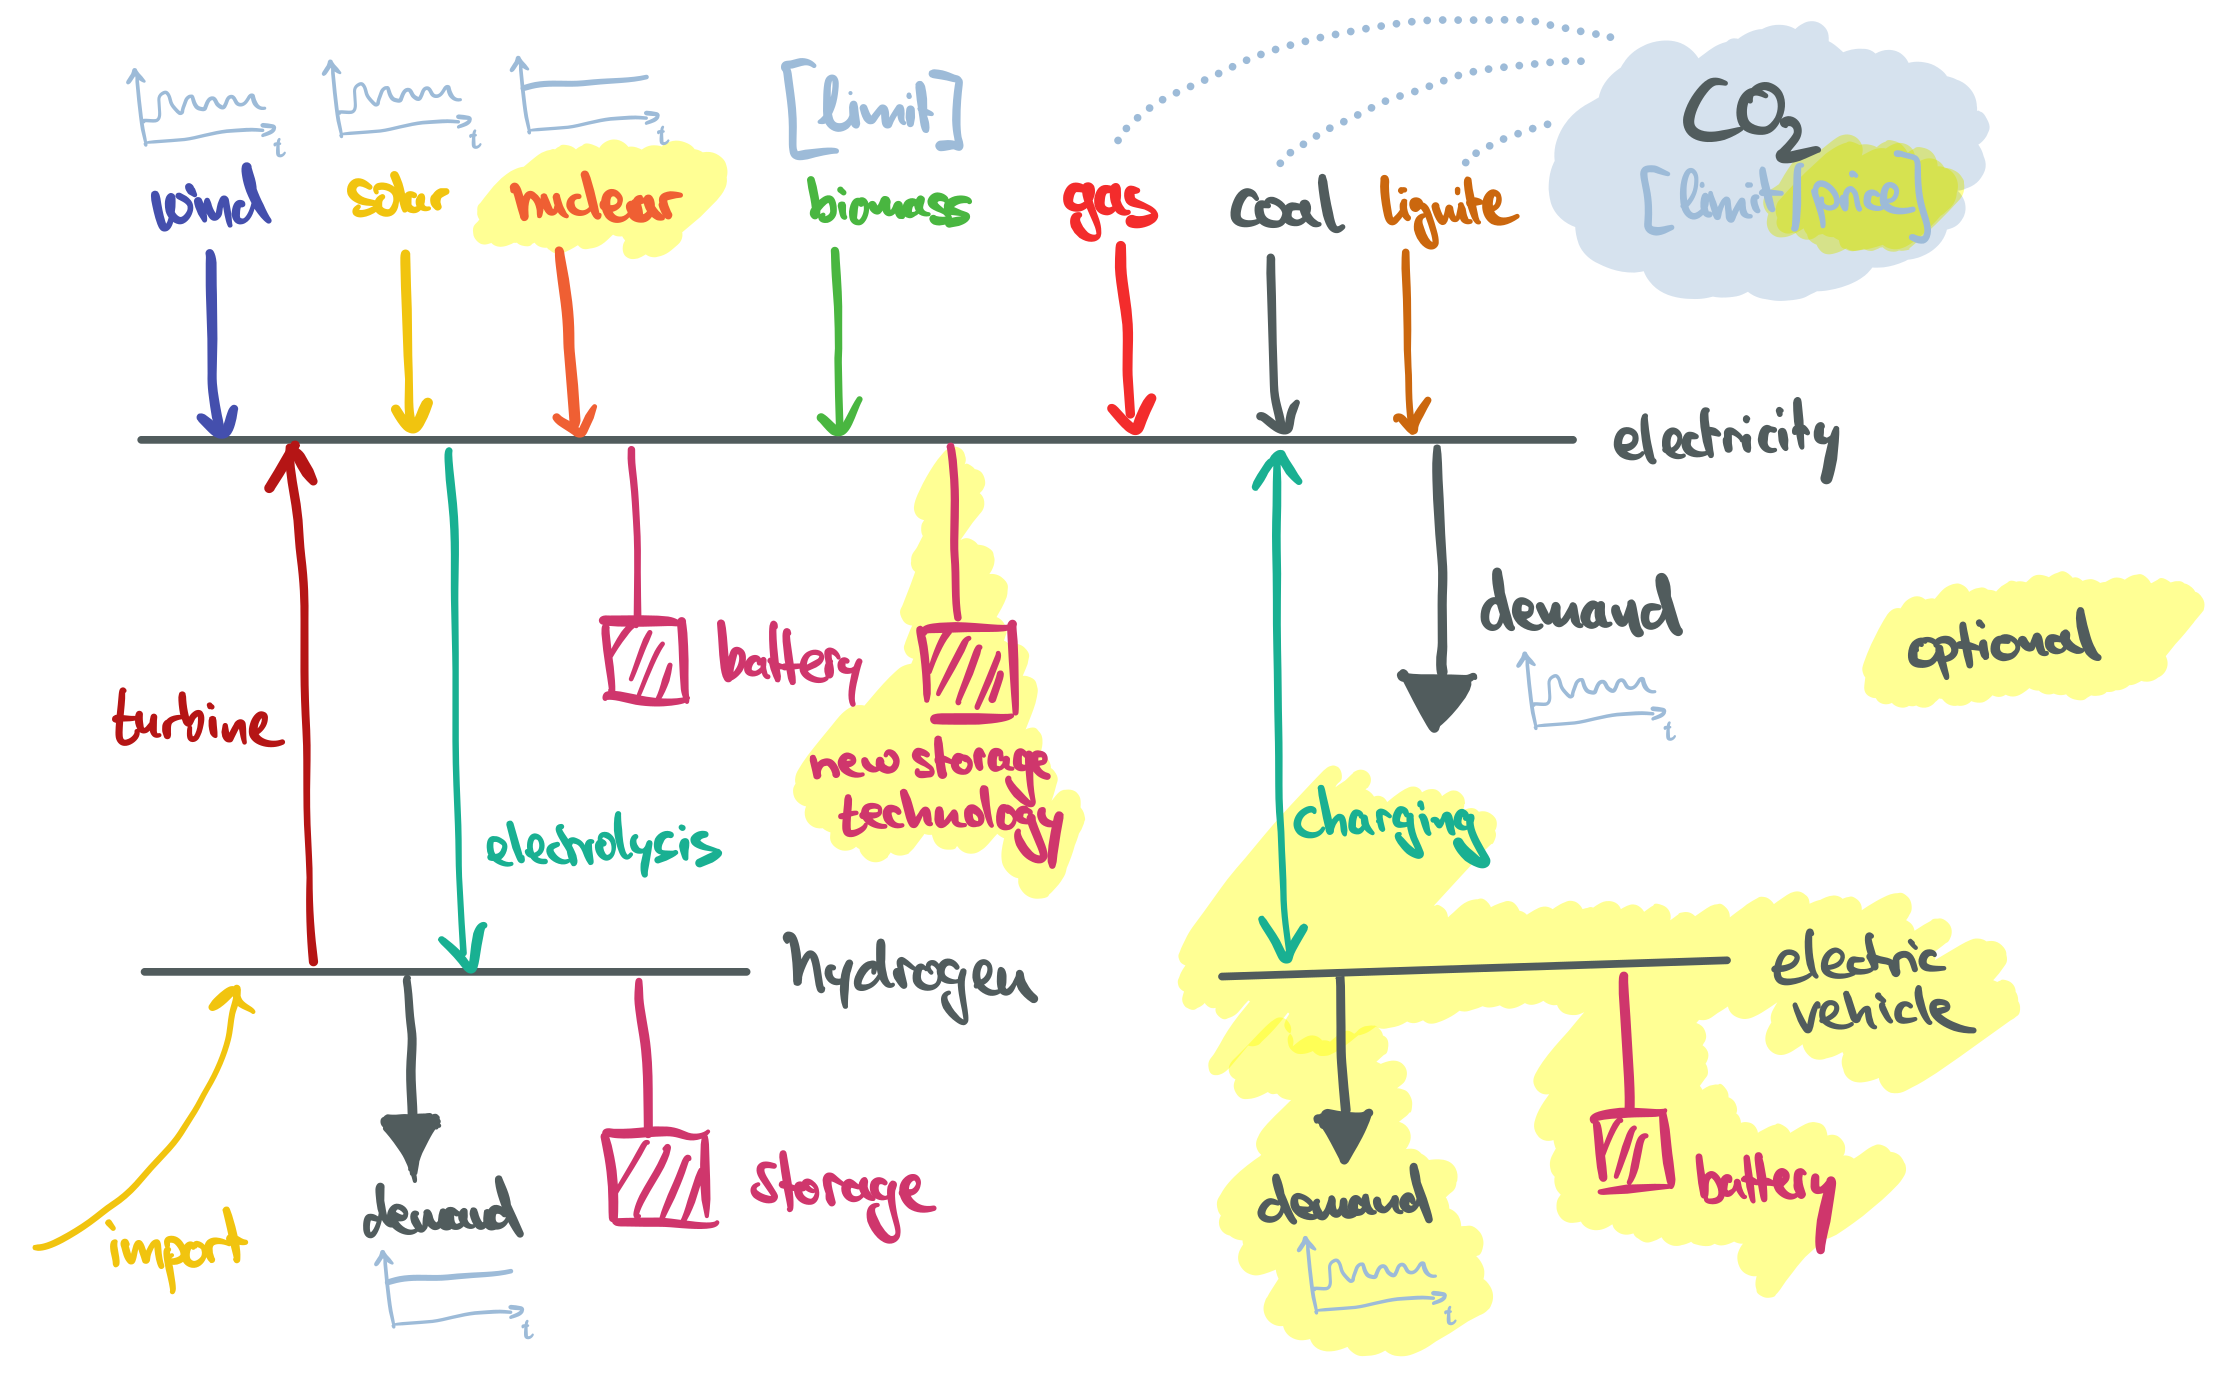 t
t
t
[limit]
CO2
[limit|price]
wind
solar
nuclear
biomass
gas
coal
lignite
electricity
demand
t
optional
battery
new storage
technology
turbine
electrolysis
charging
hydrogen
electric
vehicle
import
demand
t
storage
demand
t
battery